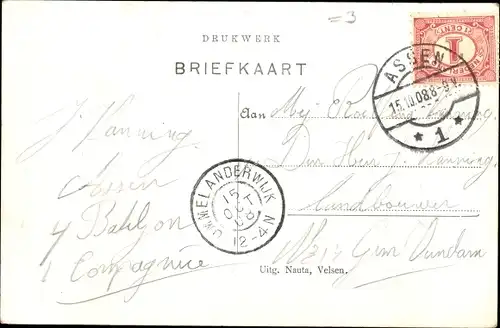 =3
DRUKWERK
BRIEFKAART
NEDERLAND
1 CENT
1
ASSEN
15.10.08.8-9V.
* 1 *
Aan Mej
Den Heer J. Hanning
Landbouwer
Gem Veendam
J. Hanning
Assen
4 Bat
1 Compagnie
OMMELANDERWIJK
15
OCT
08
12-4N
Uitg. Nauta, Velsen.